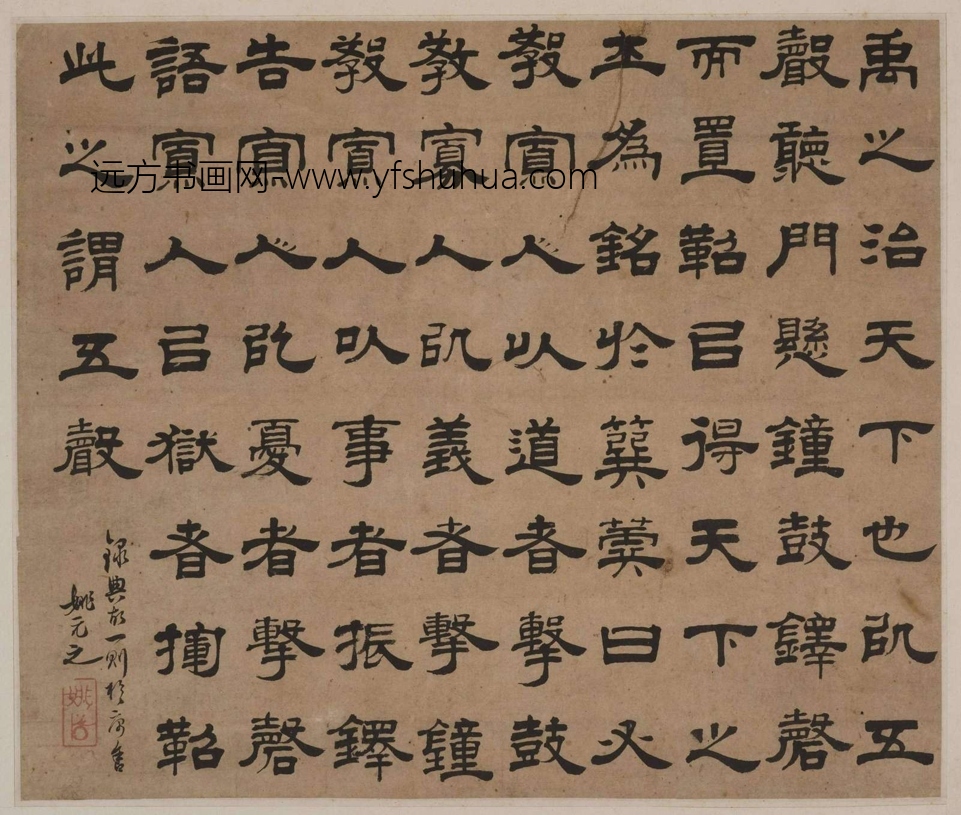 禹之治天下也㠯五
聲聽門懸鐘鼓鐸磬
而置鞀㠯得天下之
士為銘於簨曰
教寡人以道者擊鼓
教寡人㠯義者擊鐘
教寡人以事者振鐸
告寡人㠯憂者擊磬
語寡人㠯獄者揮鞀
此之謂五聲
録典故一則於京舍
姚元之
远方书画网 www.yfshuhua.com